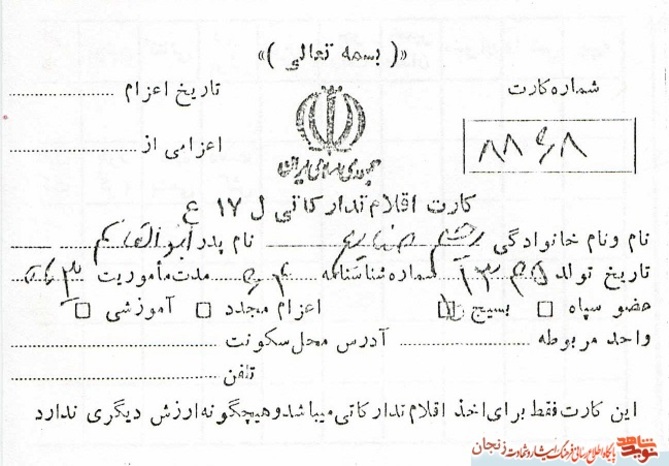 «( بسمه تعالی )»
شماره کارت
تاریخ اعزام
اعزامی از
جمهوری اسلامی ایران
کارت اقلام تدارکاتی ل ۱۷ ع
نام و نام خانوادگی رحیم نام پدر ابوالقاسم
تاریخ تولد شماره شناسنامه مدت مأموریت
عضو سپاه بسیج اعزام مجدد آموزشی
واحد مربوطه آدرس محل سکونت
تلفن
این کارت فقط برای اخذ اقلام تدارکاتی میباشد و هیچگونه ارزش دیگری ندارد
نوید شاهد
پایگاه اطلاع رسانی فرهنگ ایثار و شهادت زنجان